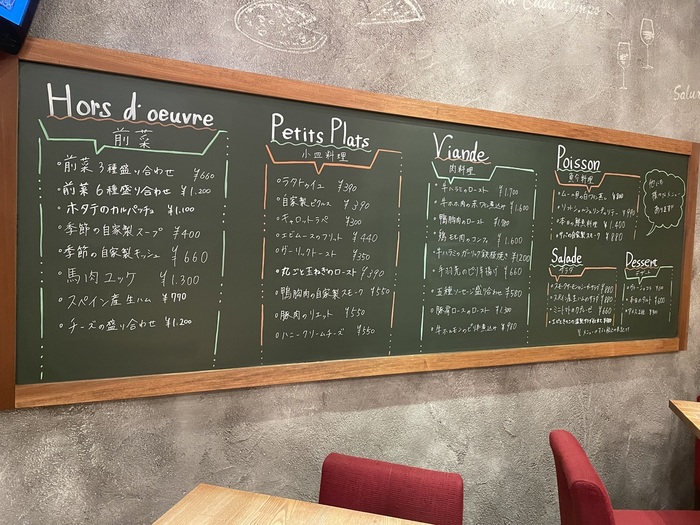 Hors d'oeuvre
前菜
・前菜3種盛り合わせ ¥660
・前菜6種盛り合わせ ¥1.200
・ホタテのカルパッチョ ¥1.100
・季節の自家製スープ ¥400
・季節の自家製キッシュ ¥660
・馬肉ユッケ ¥1.300
・スペイン産生ハム ¥770
・チーズの盛り合わせ ¥1.200
Petits Plats
小皿料理
・ラタトゥイユ ¥390
・自家製ピクルス ¥390
・キャロットラペ ¥300
・エビムースのフリット ¥440
・ガーリックトースト ¥350
・丸ごと玉ねぎのロースト ¥390
・鴨胸肉の自家製スモーク ¥550
・豚肉のリエット ¥550
・ハニークリームチーズ ¥550
Viande
肉料理
・牛ハラミのロースト ¥1.700
・牛ホホ肉の赤ワイン煮込 ¥1.600
・鴨胸肉のロースト
・鶏モモ肉のコンフィ ¥1.600
・牛ハラミのガーリック鉄板焼き ¥1200
・手羽先のピリ辛揚げ ¥660
・五種ソーセージ盛り合わせ ¥580
・豚肩ロースのロースト ¥1.300
・牛ホルモンのピリ辛煮込み ¥980
Poisson
魚介料理
・ムール貝の白ワイン蒸し
¥1.400
¥880
Salade
サラダ
¥880
・スペイン産生ハムのサラダ ¥880
¥660
Dessere
デザート
他にも
あります